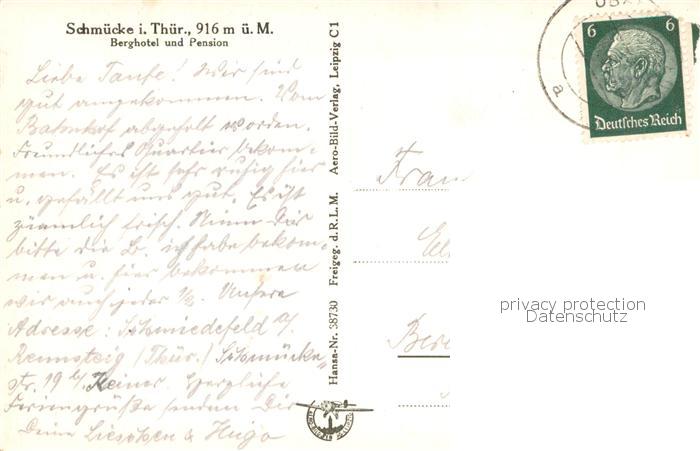 Schmücke i. Thür., 916 m ü. M.
Berghotel und Pension
Liebe Tante! Wir sind
gut angekommen. Vom
Bahnhof abgeholt worden.
Freundliches Quartier bekom-
men. Es ist sehr ruhig hier
u. gefällt uns gut. Es ist
ziemlich frisch. Nimm Dir
bitte die B. ich habe bekom-
men u. hier bekommen
wir auch jeder ½. Unsere
Adresse: Schmiedefeld a/
Rennsteig (Thür.) Schmücke-
str. 19 b/ Keiner. Herzliche
Feriengrüße senden Dir
Deine Lieschen & Hugo
Hansa-Nr. 38730 Freigeg. d. R.L.M. Aero-Bild-Verlag, Leipzig C 1
6 6
Deutsches Reich
a
Frau
privacy protection
Datenschutz